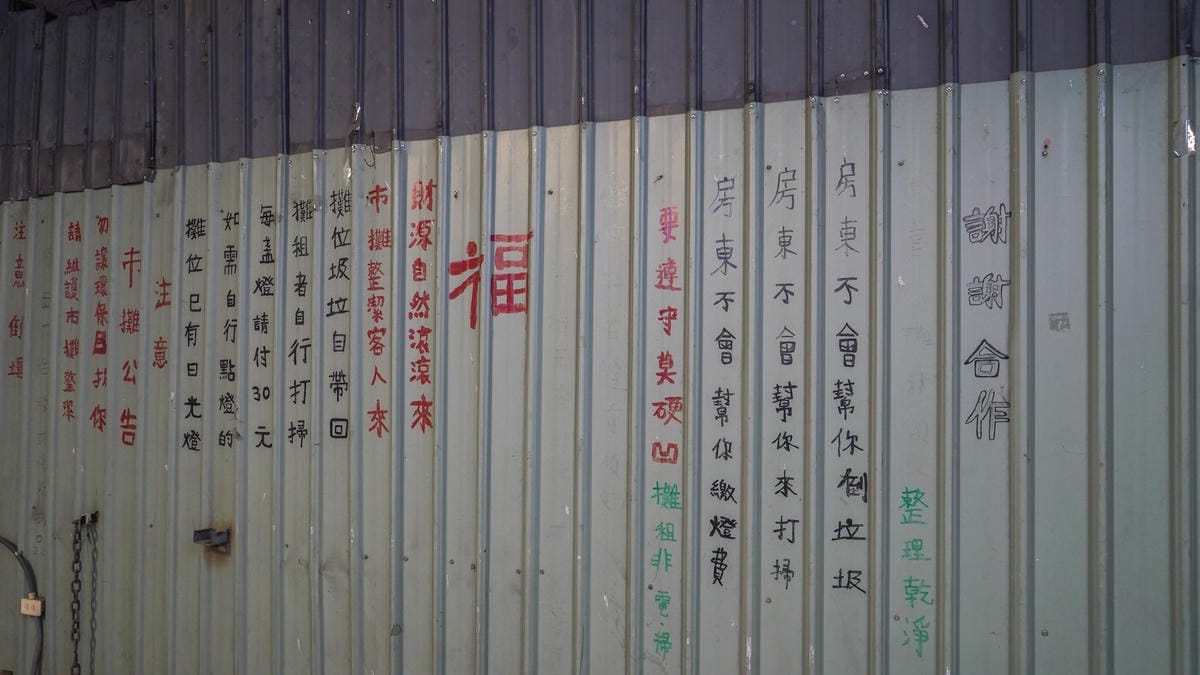 注意倒
請維護市攤整潔
勿讓環保局找你
市攤公告
注意
攤位已有日光燈
如需自行點燈的
每盞燈請付30元
攤租者自行打掃
攤位圾垃自帶回
市攤整潔客人來
財源自然滾滾來
福
要遵守莫硬凹攤租非電.掃
房東不會幫你繳燈費
房東不會幫你來打掃
房東不會幫你倒垃圾
整理乾淨
謝謝合作